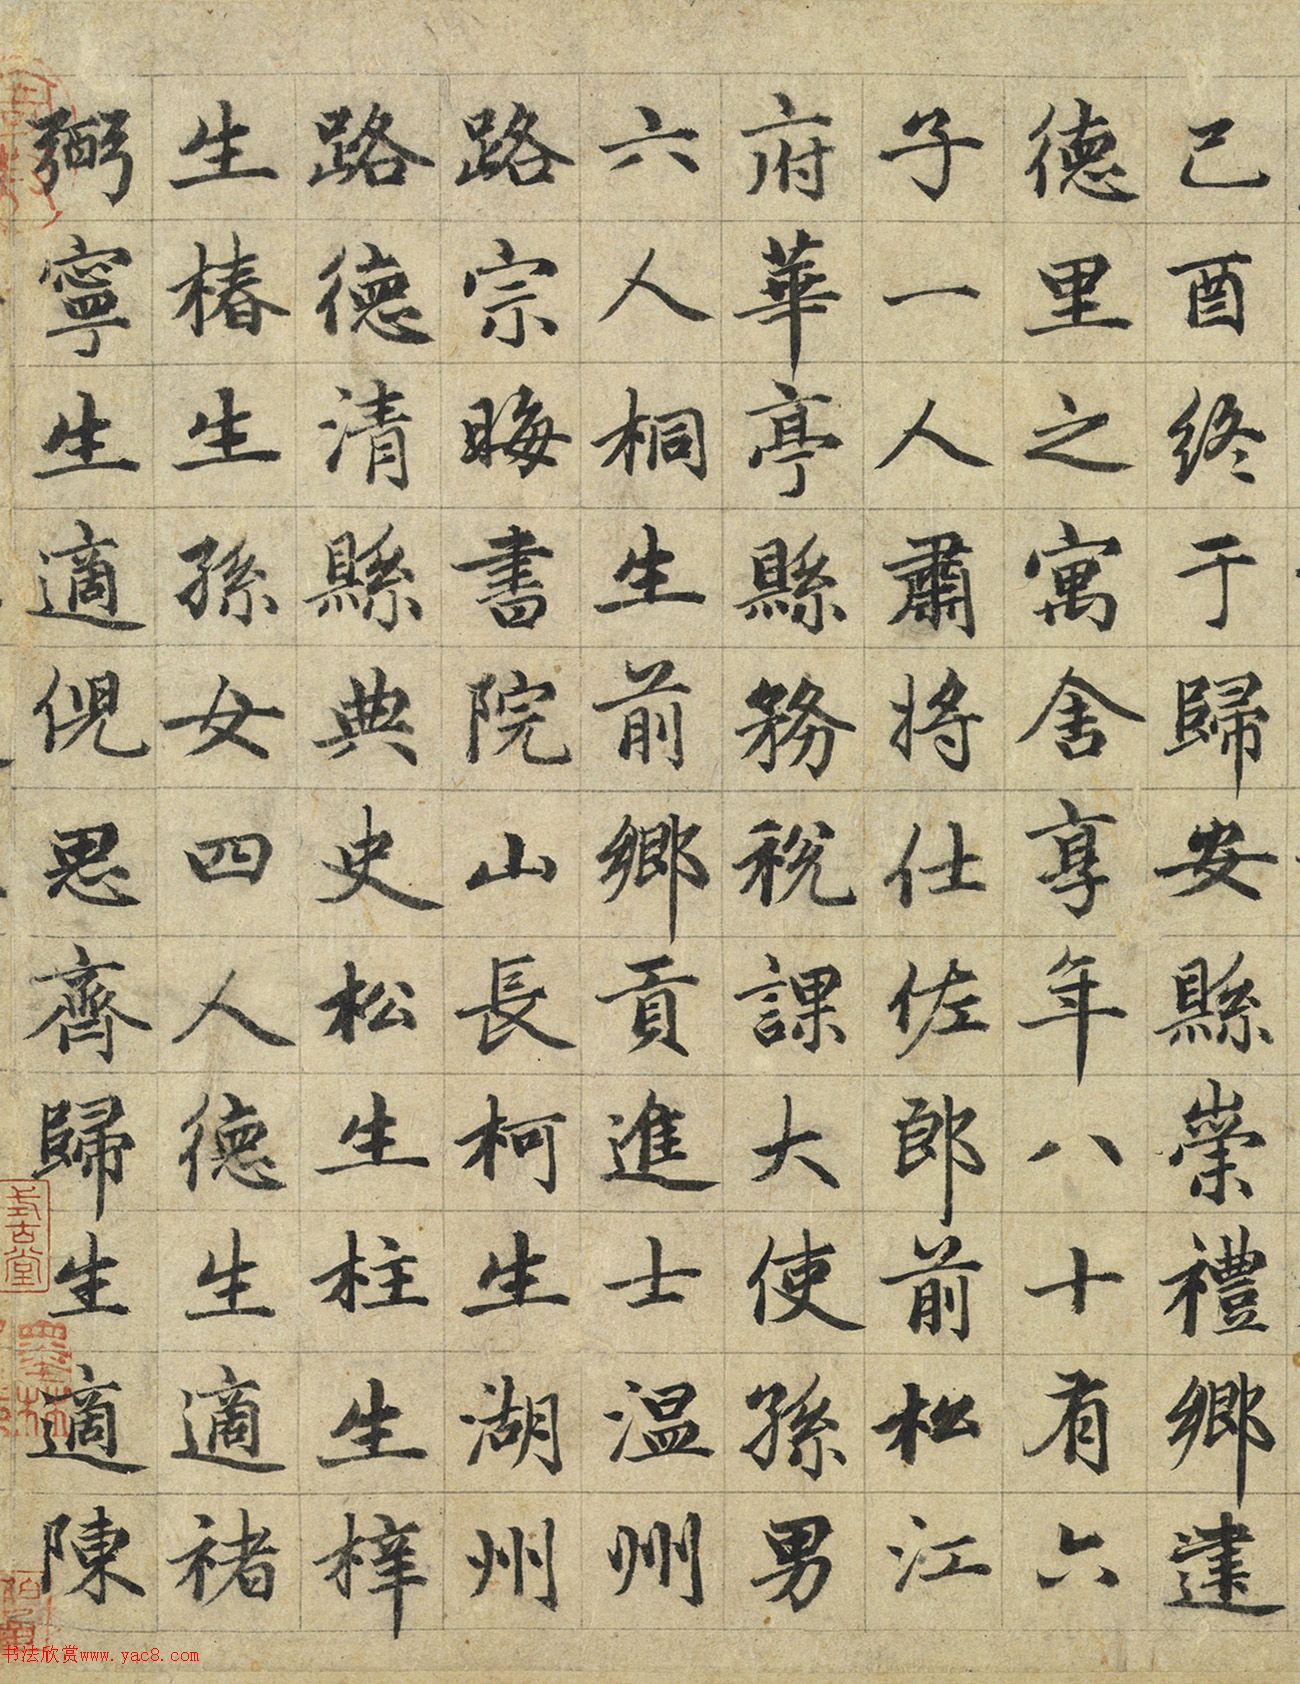 己酉終于歸安縣崇禮鄉達
德里之寓舍享年八十有六
子一人肅將仕佐郎前松江
府華亭縣務稅課大使孫男
六人桐生前鄉貢進士温州
路宗晦書院山長柯生湖州
路德清縣典史松生柱生梓
生椿生孫女四人德生適褚
弼寧生適倪思齊歸生適陳
式古堂
墨林
书法欣赏www.yac8.com